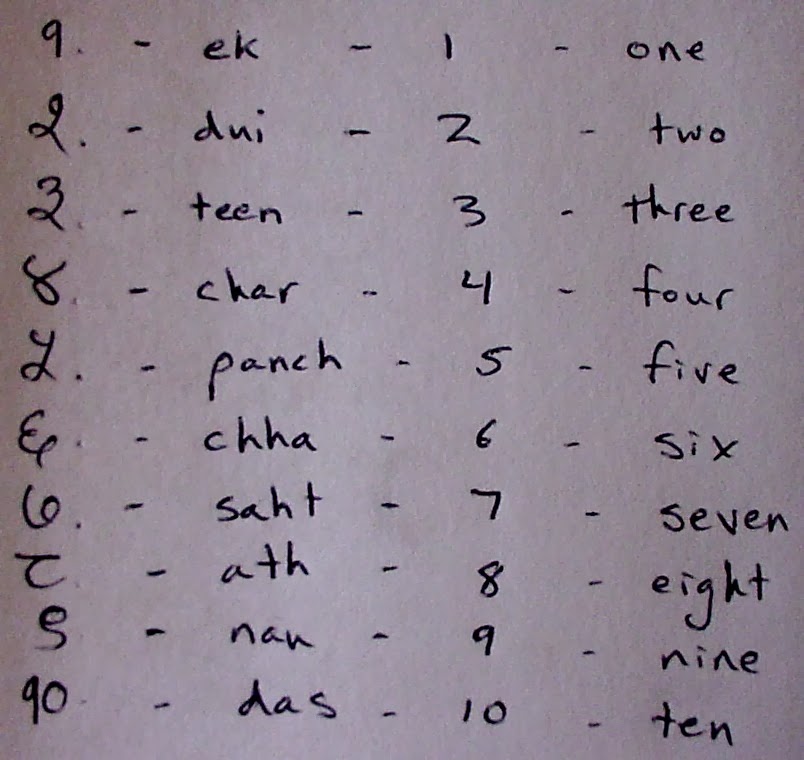 १. - ek - 1 - one
२. - dui - 2 - two
३. - teen - 3 - three
४. - char - 4 - four
५. - panch - 5 - five
६. - chha - 6 - six
७. - saht - 7 - seven
८ - ath - 8 - eight
९ - nau - 9 - nine
१० - das - 10 - ten